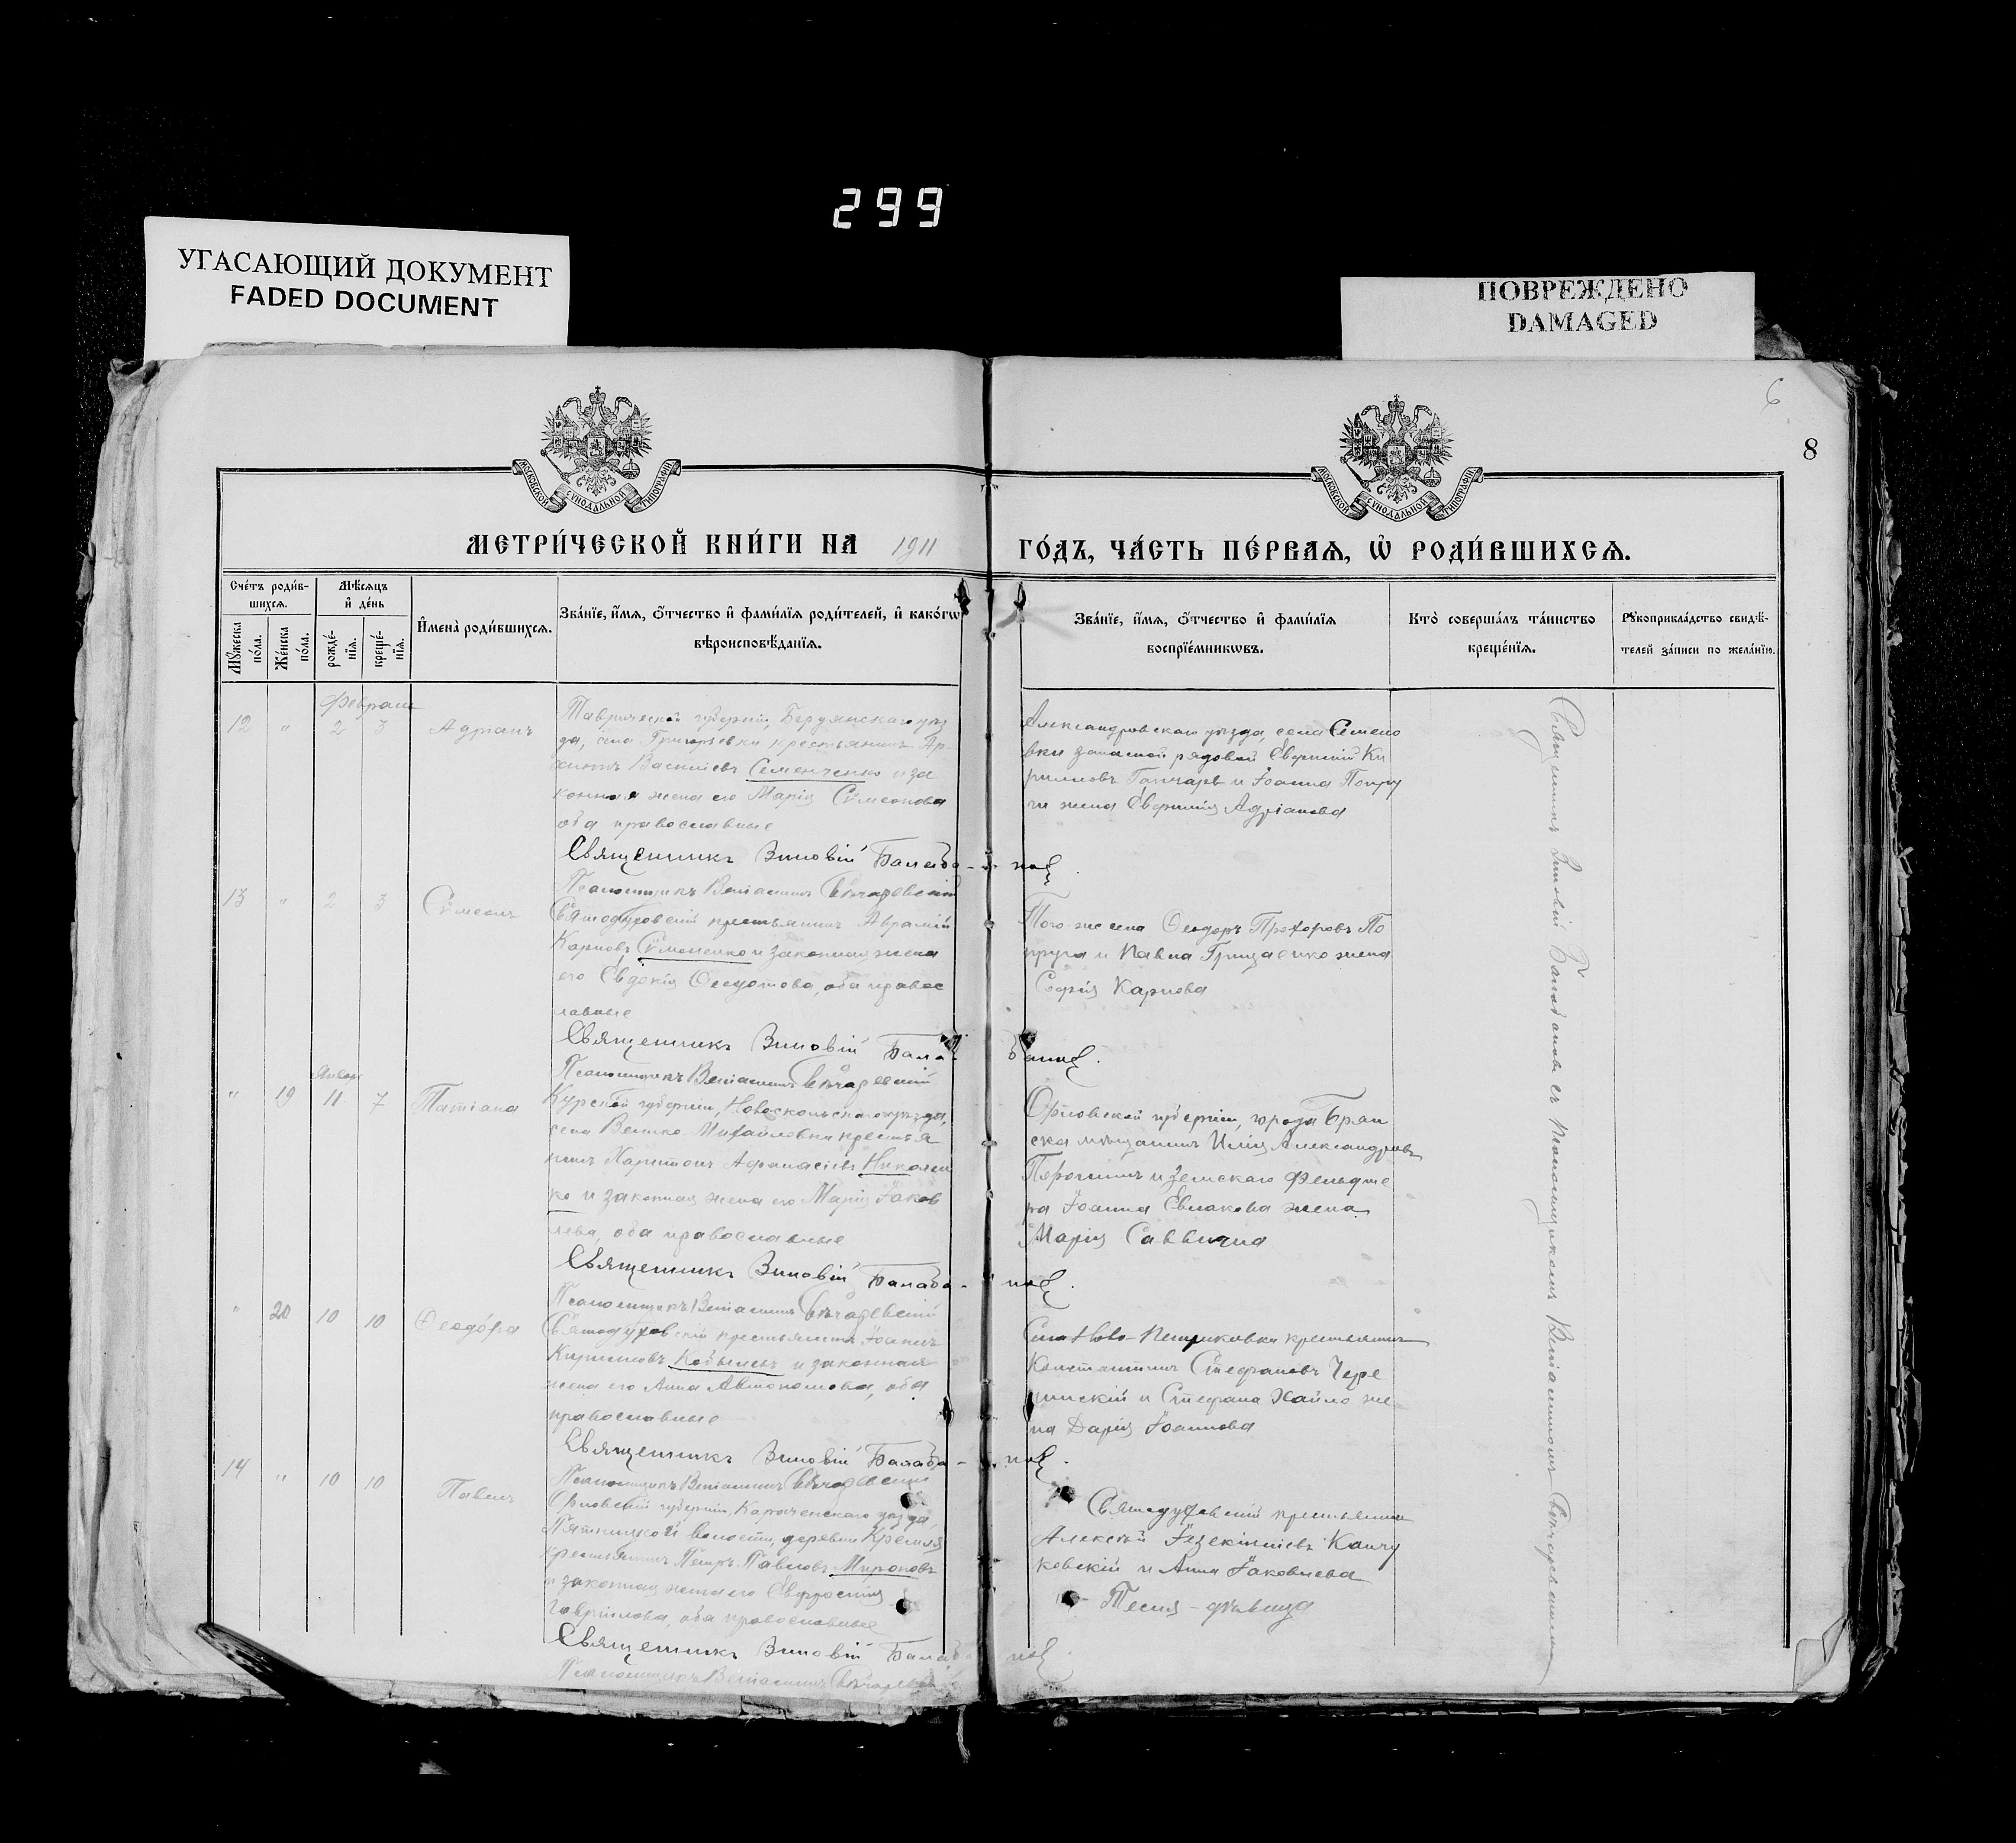 299
УГАСАЮЩИЙ ДОКУМЕНТ
FADED DOCUMENT
ПОВРЕЖДЕНО
DAMAGED
6
8
МОСКОВСКОЙ СѴНОДАЛЬНОЙ ТИПОГРАФІИ
МОСКОВСКОЙ СѴНОДАЛЬНОЙ ТИПОГРАФІИ
МЕТРИ́ЧЕСКОЙ КНИ́ГИ НА 1911
ГО́ДЪ, ЧА́СТЬ ПЕ́РВАѦ, Ѡ҆ РОДИ́ВШИХСѦ.
Сче́тъ роди́в-
шихсѧ.
Мꙋ́жеска по́ла.
Же́нска по́ла.
Мѣ́сѧцъ
и҆ де́нь
рожде́-
нїѧ.
креще́-
нїѧ.
И҆мена̀ роди́вшихсѧ.
Зва́нїе, и҆́мѧ, ѻ҆́тчество и҆ фами́лїѧ роди́телей, и҆ како́гѡ
вѣроисповѣ́данїѧ.
Зва́нїе, и҆́мѧ, ѻ҆́тчество и҆ фами́лїѧ
воспрїе́мникѡвъ.
Кто̀ соверша́лъ та́инство
креще́нїѧ.
Рꙋкоприкла́дство свидѣ́-
телей за́писи по жела́нїю.
Февраль
12 " 2 3 Адріанъ
Таврической губерніи, Бердянскаго уѣз
да, села Григорьевки крестьянинъ
Василіевъ Семенченко и за
конная жена его Марія Сѵмеонова
оба православные
Священникъ Зиновій Балабановъ
Псаломщикъ Веніаминъ
Александровскаго уѣзда, села Семено
вки запасной рядовой Евфимій Ки
рилловъ Гончаръ и Іоанна Попру
ги жена Евфимія Адріанова
13 " 2 3 Сѵмеонъ
Святодуховскій крестьянинъ Аврамій
Карповъ Сѵмоненко и законная жена
его Евдокія Ѳеодотова, оба правос
лавные
Священникъ Зиновій Балабановъ.
Псаломщикъ Веніаминъ
Того-же села Ѳеодоръ Прохоровъ По
пруга и Павла Грицаенко жена
Софія Карпова
" 19 Январь 11 7 Татіана
Курской губерніи, Новооскольскаго уѣзда,
села Велико-Михайловки крестья
нинъ Харитонъ Афанасіевъ Николен
ко и законная жена его Марія Іаков
лева, оба православные
Священникъ Зиновій Балабановъ.
Псаломщикъ Веніаминъ
Орловской губерніи, города Брян
ска мѣщанинъ Илія Александровъ
и земскаго фельдше
ра Іоанна Евлахова жена
Марія Саввична
" 20 10 10 Ѳеодо́ра
Святодуховскій крестьянинъ Іоаннъ
Кирилловъ Кобылевъ и законная
жена его Анна Автономова, оба
православные
Священникъ Зиновій Балабановъ.
Псаломщикъ Веніаминъ
Села Ново-Петриковки крестьянинъ
Константинъ Стефановъ Чере
пинскій и Стефана Хайло же
на Дарія Іоаннова
14 " 10 10 Павелъ
Орловской губерніи, Карачевскаго уѣзда,
Пятницкой волости, деревни
крестьянинъ Петръ Павловъ Мироновъ
и законная жена его Евфросинія
Гавріилова, оба православные
Священникъ Зиновій Балабановъ
Псаломщикъ Веніаминъ
Святодуховскій крестьянинъ
Алексѣй Іезекіилевъ
и Анна Іаковлева
- дѣвица
Священникъ Зиновій Балабановъ съ псаломщикомъ Веніаминомъ